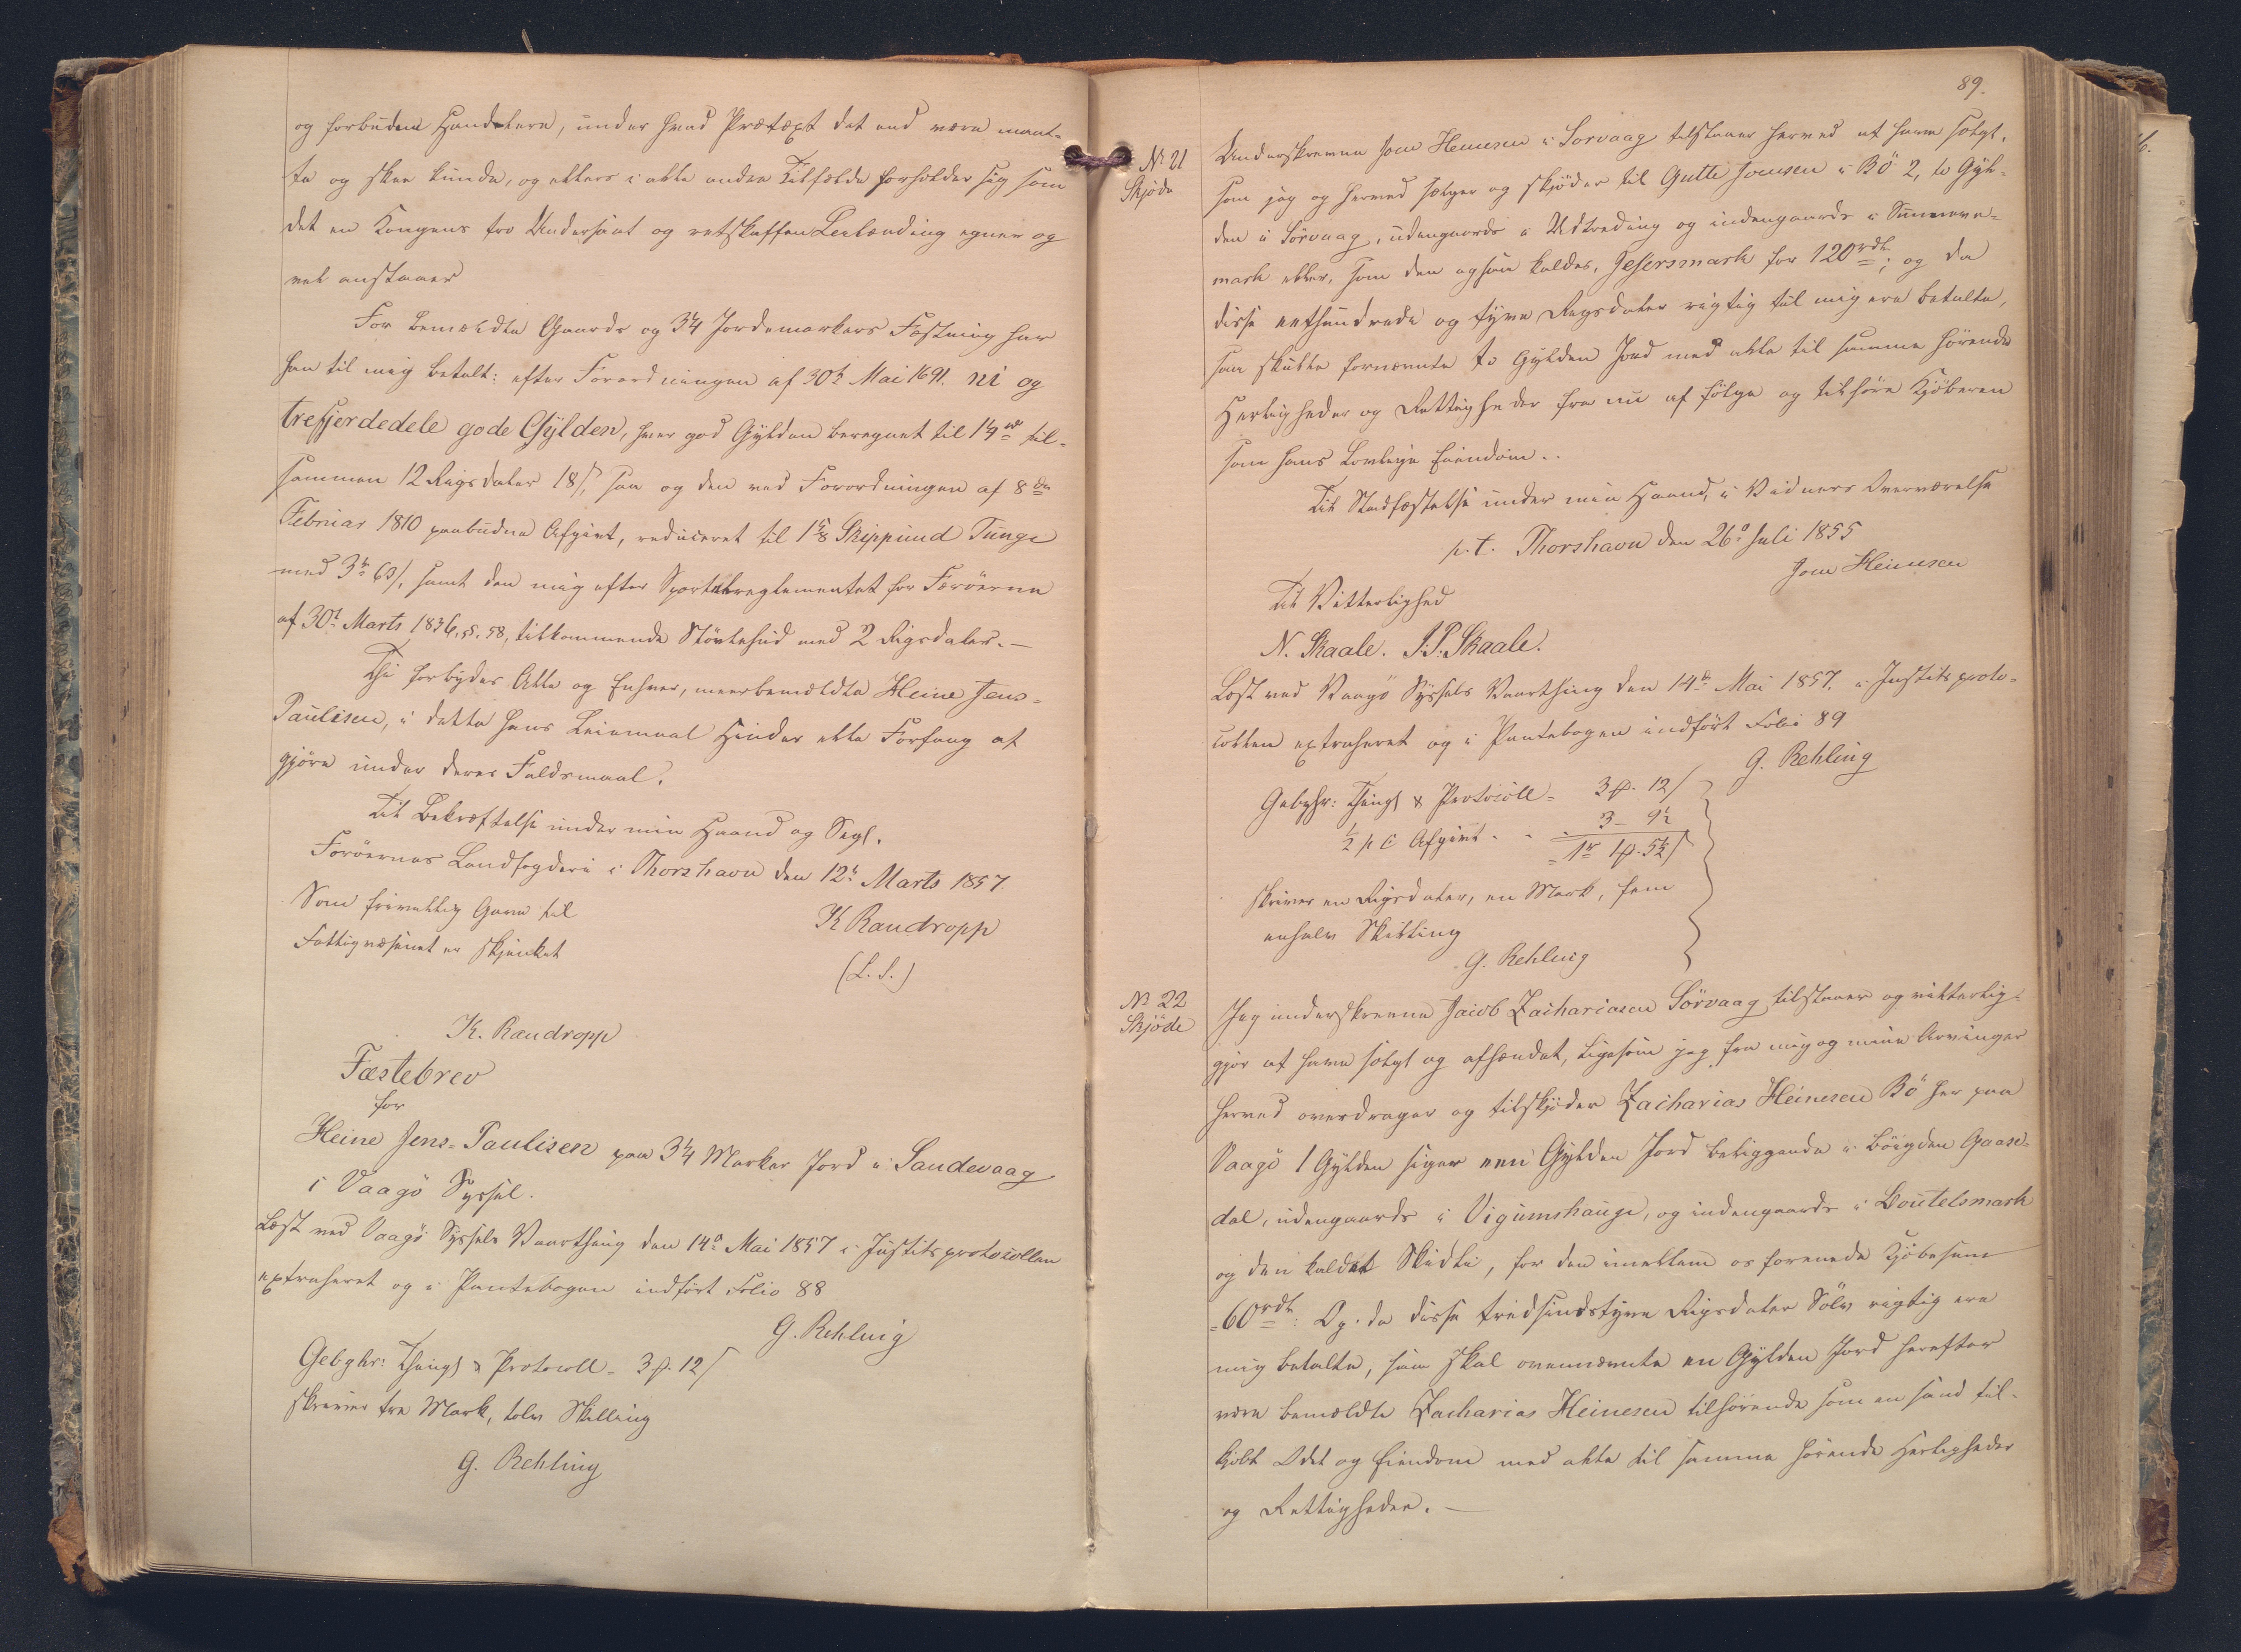 og forbuden Handelere, under hvad Prætext det end være maat-
te og skee kunde, og ellers i alle andre Tilfælde forholder sig som
det en Kongens tro Undersaat og retskaffen Leilænding egner og
vel anstaaer
For bemældte Gaards og 3¼ Jordemarkers Fæstning har
han til mig betalt: efter Forordningen af 30te Mai 1691. ni og
trefjerdedele gode Gylden, hver god Gylden beregnet til 1¼ rd til-
sammen 12 Rigsdaler 18 s, saa og den ved Forordningen af 8de
Februar 1810 paabudne Afgivt, reduceret til 1⅝ Skippund Tunge
med 3 rd 63 s, samt den mig efter Sportelreglementet for Færöerne
af 30te Marts 1836, §. 58, tilkommende Stövlehud med 2 Rigsdaler. —
Thi forbydes Alle og Enhver, meerbemeldte Heine Jens-
Paulisen, i dette hans Leiemaal Hinder elle Forfang at
gjöre under deres Faldsmaal.
Til Bekræftelse under min Haand og Segl.
Færöernes Landfogderi i Thorshavn den 12te Marts 1857.
Som frivillig Gave til
K Randropp
Fattigvæsenet er skjenket
(L. S.)
K. Randropp
Fæstebrev
for
Heine Jens-Paulisen paa 3¼ Marker Jord i Sandevaag
i Vaagö Syssel.
Læst ved Vaagö Syssels Vaarthing den 14de Mai 1857 i Justitsprotocollen
extraheret og i Pantebogen indfört Folio 88
G. Rehling
Gebyhr: Thingl & Protocoll - 3 p. 12 s
skriver tre Mark, tolv Skilling
G. Rehling
89.
No 21
Skjöde
Underskrevne Jone Heinesen i Sorvaag tilstaaer herved at have solgt,
som jeg og herved sælger og skjöder til Gutte Jonesen i Bö 2, to Gyl-
den i Sörvaag, udengaards i Udtreding og indengaards i
mark eller, som den ogsaa kaldes, Jesersmark for 120 rdl; og da
disse eethundrede og tyve Rigsdaler rigtig til mig ere betalte,
saa skulle fornævnte to Gylden Jord med alle til samme hörende
Herligheder og Rettigheder fra nu af fölge og tilhöre Kjöberen
som hans Lovlige Eiendom..
Til Stadfæstelse under min Haand, i Vidners Overværelse
p. t. Thorshavn den 26de Juli 1855
Jone Heinesen
Til Vitterlighed
N. Skaale. J. P. Skaale.
Læst ved Vaagö Syssels Vaarthing den 14de Mai 1857. i Justitsproto-
collen extraheret og i Pantebogen indfört Folio 89
G. Rehling
Gebyhr: Thingl & Protocoll - 3 p. 12 s
½ p C Afgivt - - 3 - 9½
= 1 rd 1 p. 5½ s
skriver en Rigsdaler, en Mark, fem
enhalv Skilling
G. Rehling
No 22
Skjöde
Jeg underskrevne Jacob Zachariasen Sörvaag tilstaaer og vitterlig-
gjör at have solgt og afhændet, ligesom jeg fra mig og mine Arvinger
herved overdrager og tilskjöder Zacharias Heinesen Bö her paa
Vaagö 1 Gylden siger een Gylden Jord beliggende i Böigden Gaase-
dal, udengaards i Vigumshauge, og indengaards i Boutelsmark
og den kaldet Skidli, for den imellem os forenede Kjöbesum
- 60 rdl: Og da disse tredsindstyve Rigsdaler Sölv rigtig ere
mig betalte, saa skal ovennævnte en Gylden Jord herefter
være bemældte Zacharias Heinesen tilhörende som en sand til-
kjöbt Odel og Eiendom med alle til samme hörende Herligheder
og Rettigheder. —